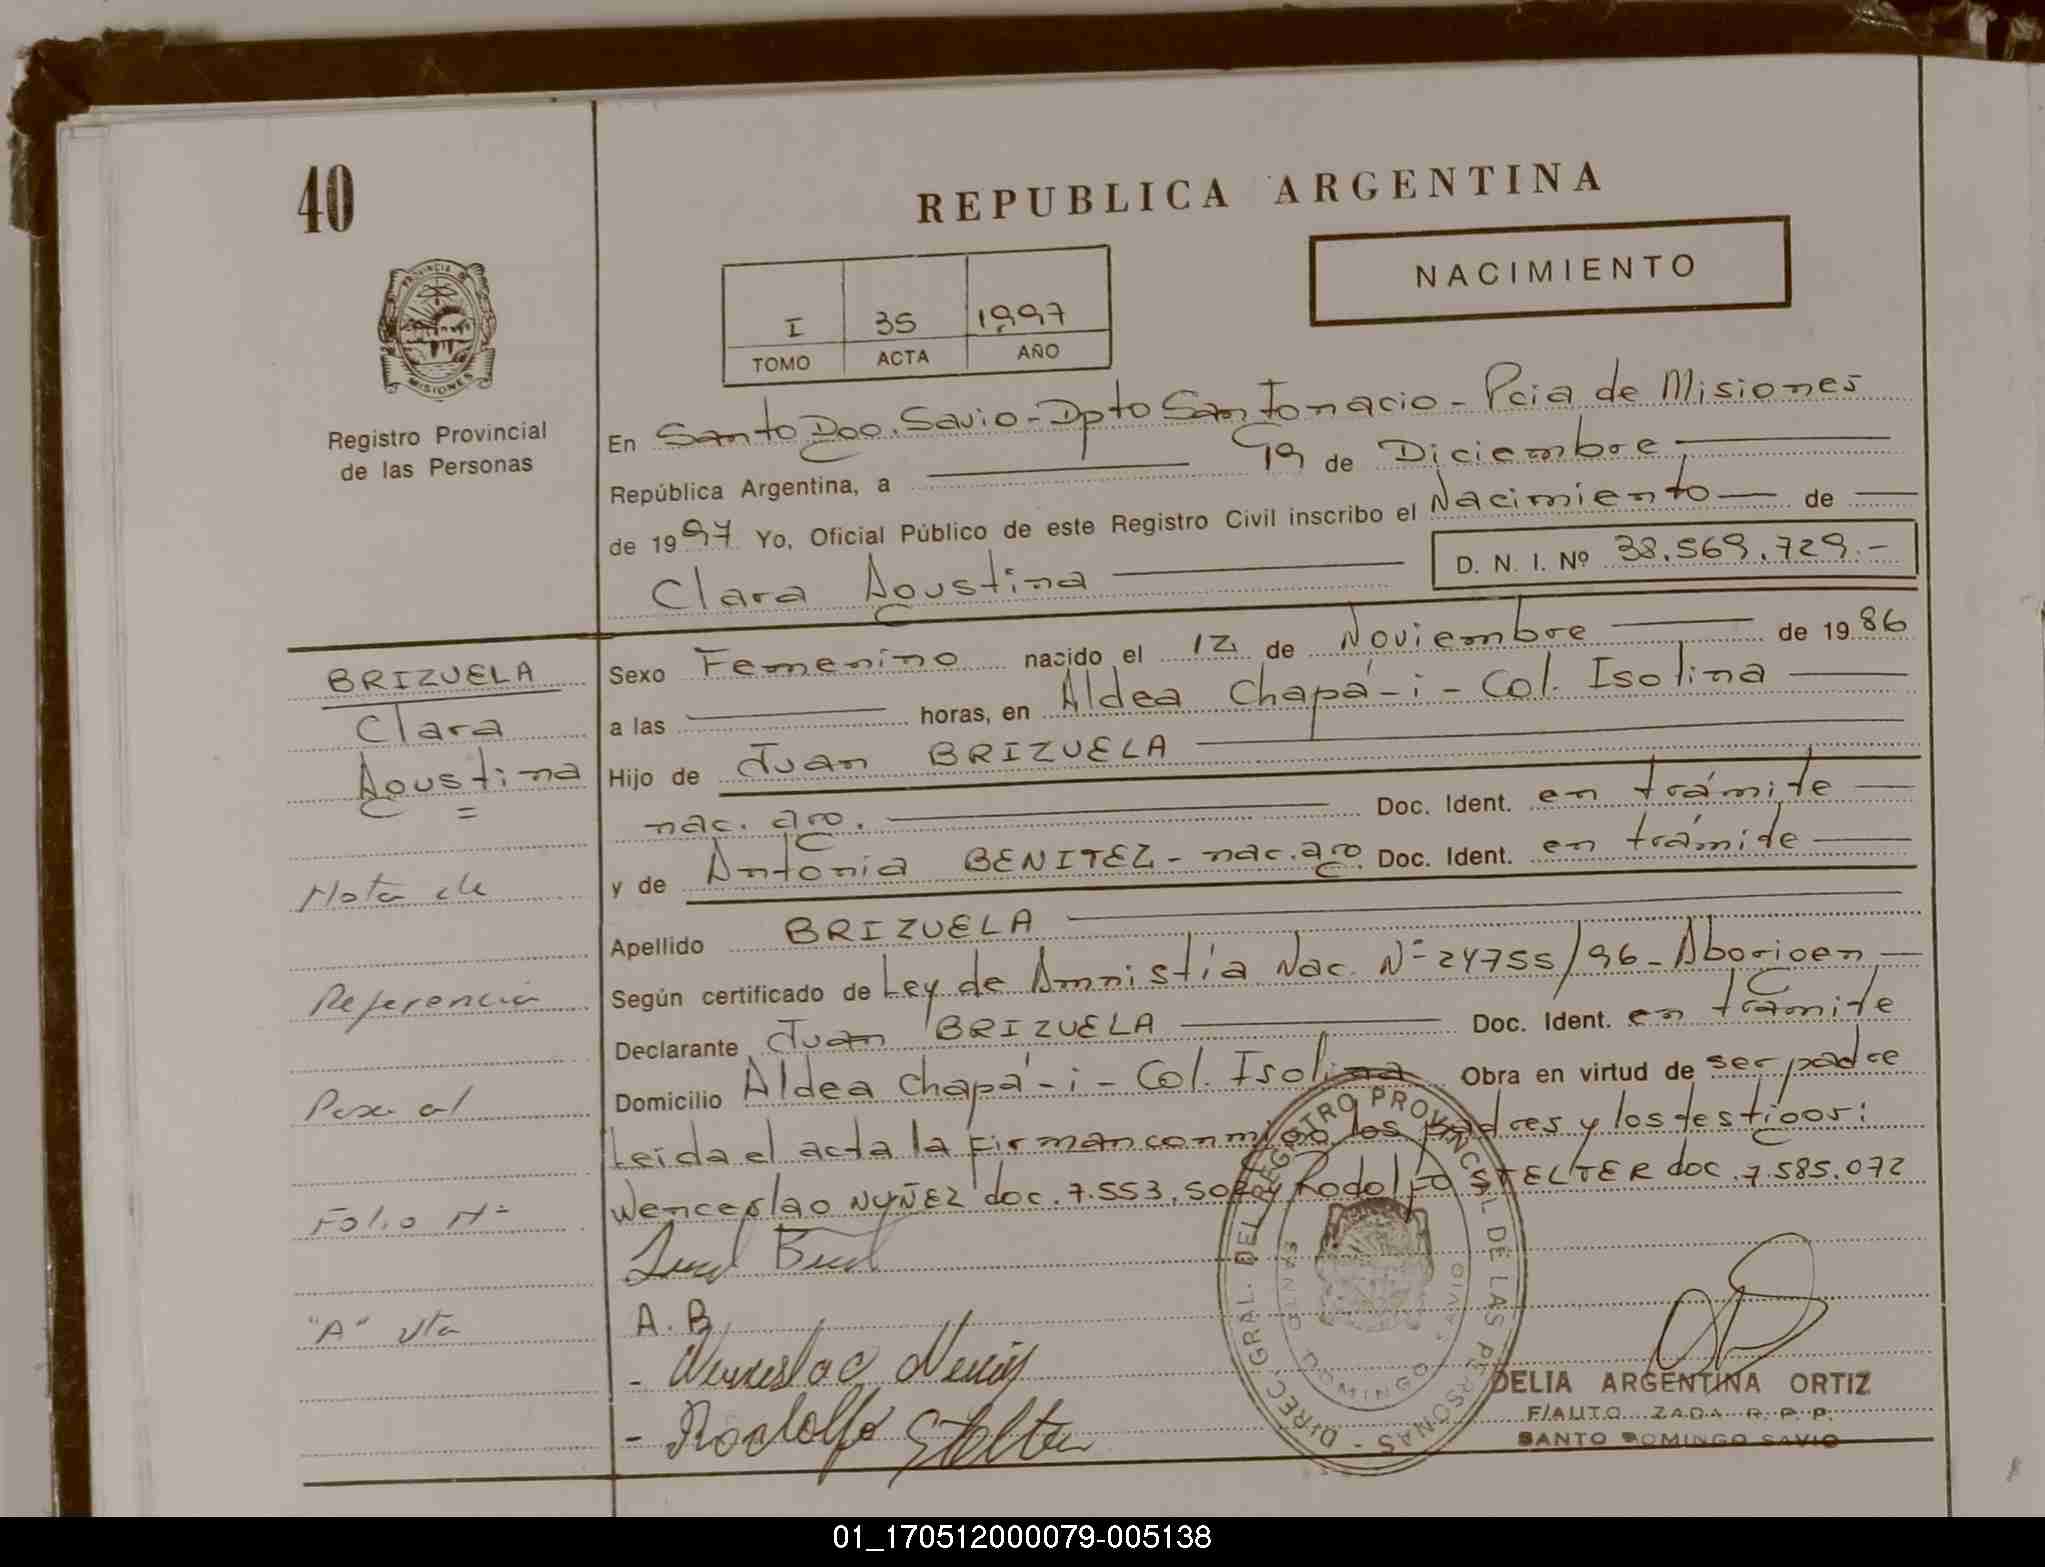 40
REPUBLICA ARGENTINA
NACIMIENTO
PROVINCIA DE
MISIONES
Registro Provincial
de las Personas
I 35 1997
TOMO ACTA AÑO
En Santo Dgo. Savio - Dpto San Ignacio - Pcia de Misiones
República Argentina, a 19 de Diciembre
de 1997 Yo, Oficial Público de este Registro Civil inscribo el Nacimiento de
Clara Agustina D. N. I. Nº 38.569.729.-
BRIZUELA
Clara
Agustina
Sexo Femenino nacido el 12 de Noviembre de 1986
a las horas, en Aldea Chapá-i - Col. Isolina
Hijo de Juan BRIZUELA
nac. arg. Doc. Ident. en trámite
y de Antonia BENITEZ - nac. arg Doc. Ident. en trámite
Apellido BRIZUELA
Según certificado de Ley de Amnistía Nac. Nº 24755/96 - Aborigen
Declarante Juan BRIZUELA Doc. Ident. en trámite
Domicilio Aldea Chapá-i - Col. Isolina Obra en virtud de ser padre
Leida el acta la firman conmigo los padres y los testigos:
Wenceslao NUÑEZ doc. 7.553.502 y Rodolfo STELTER doc. 7.585.072
Nota de
Referencia
Pase al
Folio Nº
"A" vta
A. B
- Wenceslao Nuñez
- Rodolfo Stelter
DIREC. GRAL. DEL REGISTRO PROVINCIAL DE LAS PERSONAS -
DOMINGO SAVIO
DELIA ARGENTINA ORTIZ
F/AUTORIZADA R. P. P.
SANTO DOMINGO SAVIO
01_170512000079-005138